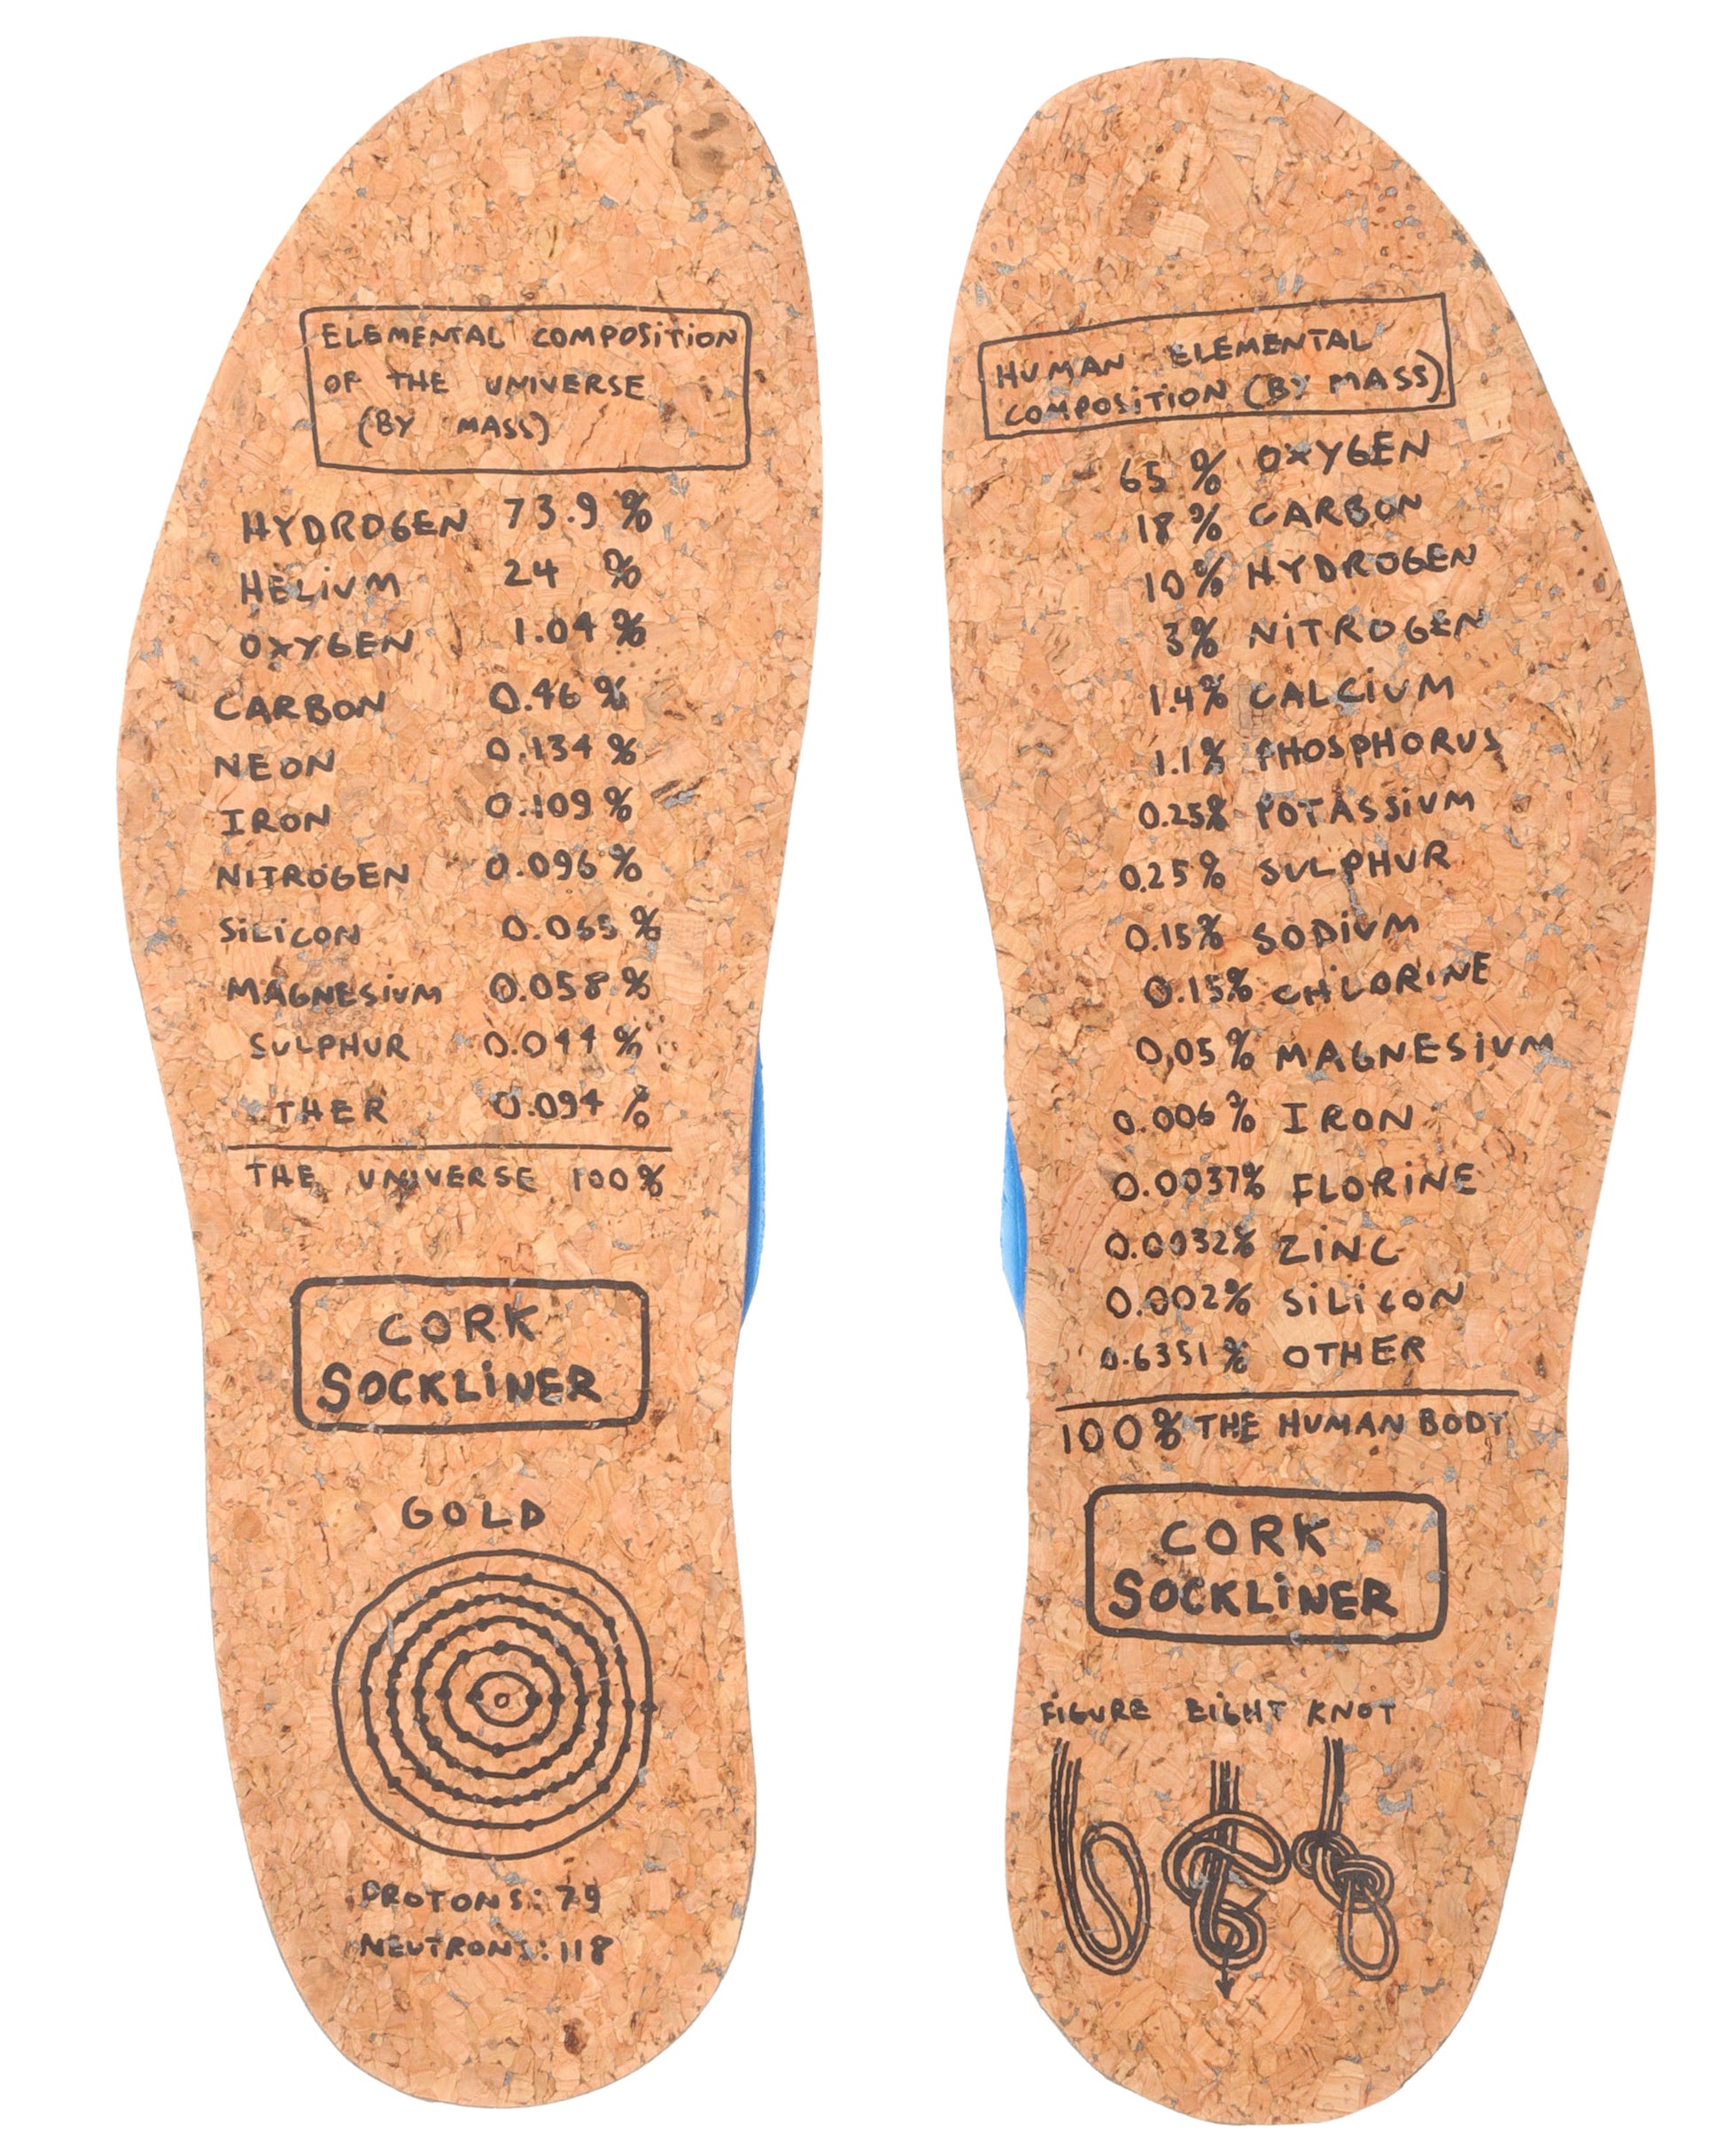 ELEMENTAL COMPOSITION
OF THE UNIVERSE
(BY MASS)
HYDROGEN 73.9 %
HELIUM 24 %
OXYGEN 1.04 %
CARBON 0.46 %
NEON 0.134 %
IRON 0.109 %
NITROGEN 0.096 %
SILICON 0.065 %
MAGNESIUM 0.058 %
SULPHUR 0.044 %
THER 0.094 %
THE UNIVERSE 100%
CORK
SOCKLINER
GOLD
PROTONS: 79
NEUTRONS: 118
HUMAN ELEMENTAL
COMPOSITION (BY MASS)
65 % OXYGEN
18 % CARBON
10 % HYDROGEN
3% NITROGEN
1.4% CALCIUM
1.1% PHOSPHORUS
0.25% POTASSIUM
0.25% SULPHUR
0.15% SODIUM
0.15% CHLORINE
0,05 % MAGNESIUM
0.006 % IRON
0.0037% FLORINE
0.0032% ZINC
0.002% SILICON
0.6351 % OTHER
100% THE HUMAN BODY
CORK
SOCKLINER
FIGURE EIGHT KNOT